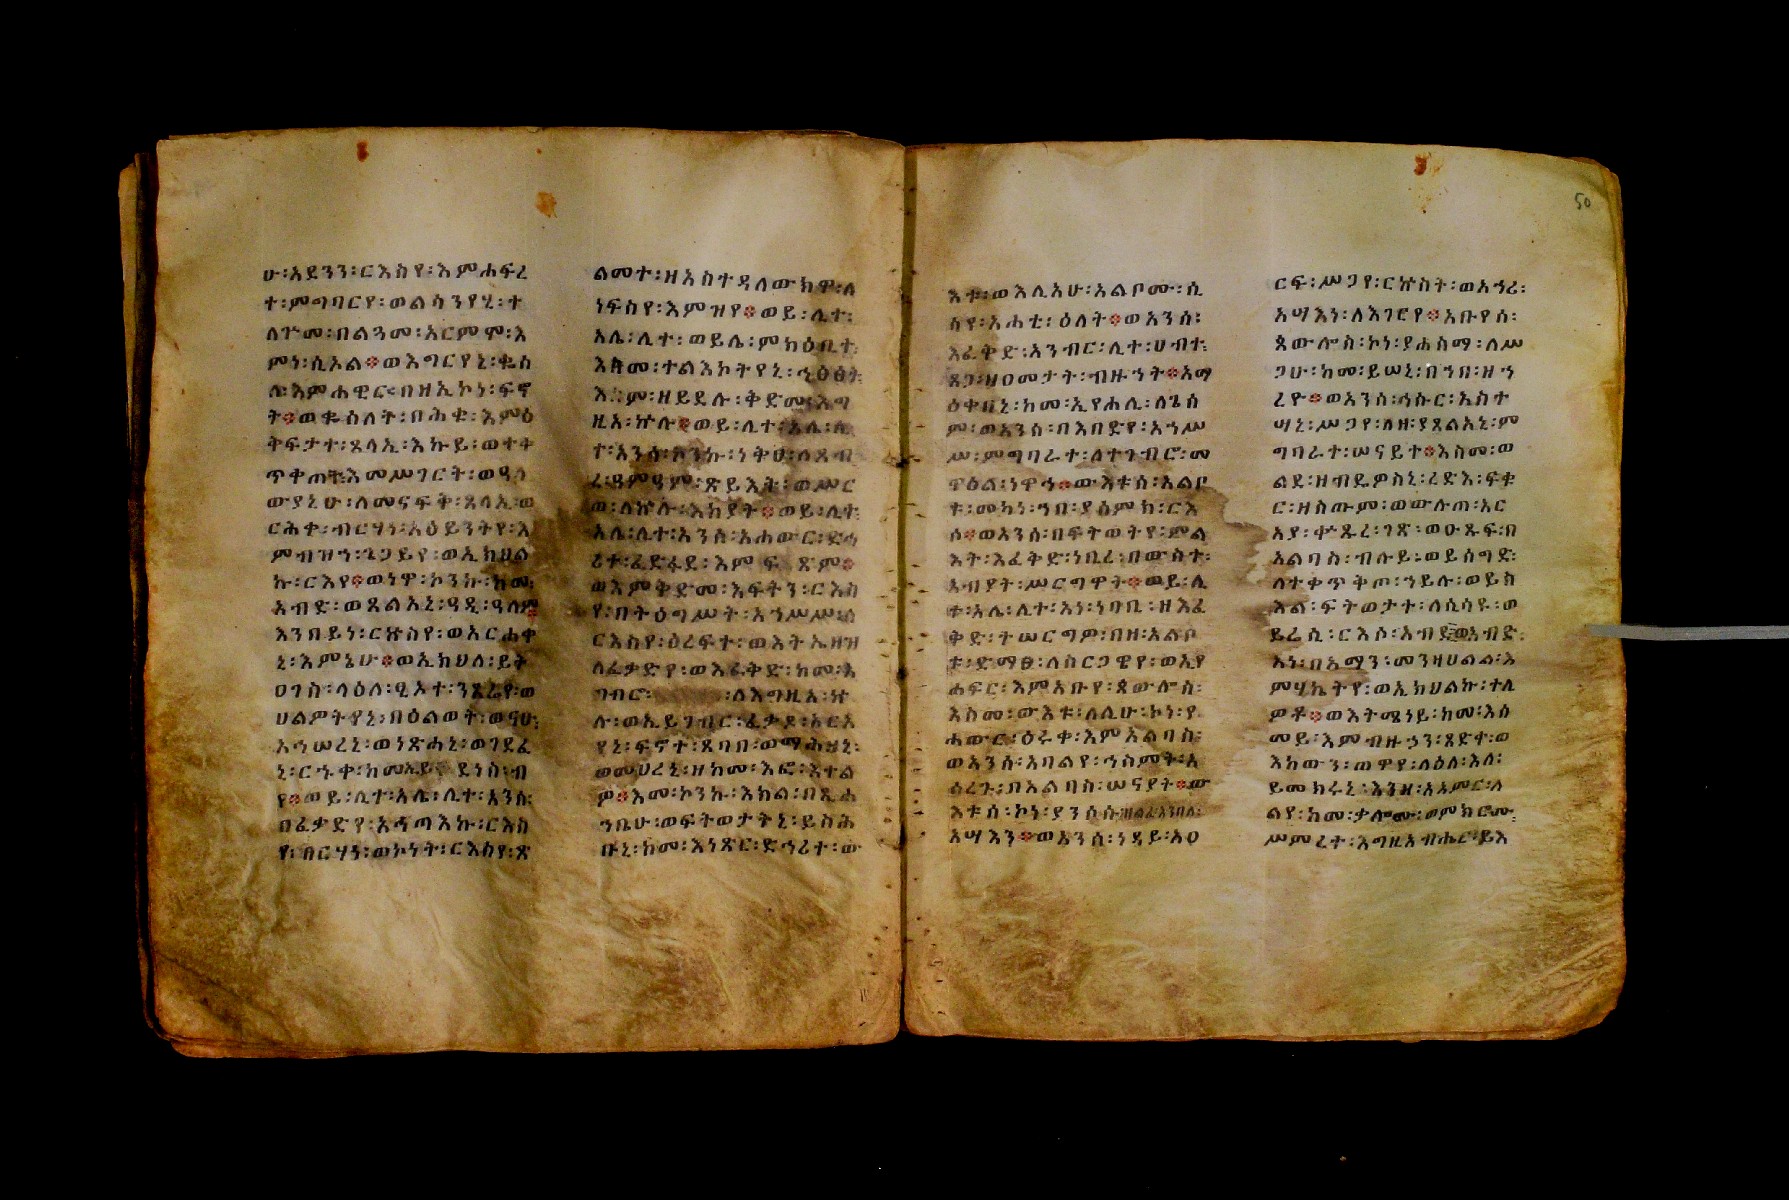 ሁ፡አደንን፡ርእስየ፡እምሐፍረ
ት፡ምግባርየ፡ወልሳንየሂ፡ተ
ለጐመ፡በልጓመ፡አርምሞ፡እ
ምነ፡ሲኦል፨ወእግርየኒ፡ቈስ
ሉ፡እምሐዊር፡በዘኢኮነ፡ፍኖ
ት፨ወቈስለት፡በሕቁ፡እምዕ
ቅፍታተ፡ጸላኢ፡እኩይ፡ወተቀ
ጥቀጠት፡እመሥገርት፡ወዓሳ
ውያኒሁ፡ለመናፍቅ፡ጸላኢ፡ወ
ርሕቀ፡ብርሃነ፡አዕይንትየ፡እ
ምብዝኀ፡ጌጋይየ፡ወኢክህል
ኩ፡ርእየ፨ወነዋ፡ኮንኩ፡ከመ፡
አብድ፡ወጸልአኒ፡ዓዲ፡ዓለም
እንበይነ፡ርኵስየ፡ወአርሐቀ
ኒ፡እምኔሁ፨ወኢክህለ፡ይት
ዐገስ፡ላዕለ፡ፄአተ፡ንጼራየ፡ወ
ሀልዎትየኒ፡በዕልወት፡
አኅሠረኒ፡ወነጽሐኒ፡ወገደፈ
ኒ፡ርኁቀ፡
የ፨ወይ፡ሊተ፡አሌ፡ሊተ፡አንሰ፡
በፈቃድየ፡አኅጣእኩ፡ርእስ
የ፡ብርሃነ፡ወኮነት፡ርእስየ፡ጽ
ልመተ፡ዘአስተዳለውክዋ፡ለ
ነፍስየ፡እምዝየ፨ወይ፡ሊተ፡
አሌ፡ሊተ፡ወይሌ፡ምክዕቢተ፡
እስመ፡ተልእኮትየኒ፡
ዘይደሉ፡ቅድመ፡እግ
ዚአ፡ኵሉ፨ወይ፡ሊተ፡አሌ፡ሊ
ተ፡አንሰ፡ኮንኩ፡ነቅዐ፡ለጸብ
ረ፡ዓምዓም፡ጽይእት፡ወሥር
ወ፡ለኵሉ፡እከያት፨ወይ፡ሊተ፡
አሌ፡ሊተ፡አንሰ፡አሐውር፡ድኅ
ሪተ፡ፈድፋደ፡እምፍጽም፨
ወእምቅድመ፡እፍትን፡ርእስ
የ፡በትዕግሥት፡አኀሥሥ፡ለ
ርእስየ፡ዕረፍተ፡
ለፈቃድየ፡ወእፈቅድ፡ከመ፡እ
ገብሮ፡ለእግዚአ፡ኵ
ሉ፡ወኢይገብር፡ፈቃዶ፡
የኒ፡ፍኖተ፡ጸባበ፡
ወመሀረኒ፡ዘከመ፡እፎ፡እተል
ዎ፨እመ፡ኮንኩ፡እክል፡በጺሐ
ኀቤሁ፡ወፍትወታትኒ፡ይስሕ
ቡኒ፡ከመ፡እነጽር፡ድኅሪተ፡ው
እቱ፡ወእሊአሁ፡አልቦሙ፡ሲ
ሳየ፡አሐቲ፡ዕለት፨ወአንሰ፡
እፈቅድ፡አንብር፡ሊተ፡ሀብተ፡
ጸጋ፡ዘዐመታት፡ብዙኅት፨እማ
ዕቀበኒ፡ከመ፡ኢየሐሊ፡ለጌሰ
ም፡ወአንሰ፡በእበድየ፡አኀሥ
ሥ፡ምግባራተ፡ለተገብሮ፡መ
ዋዕል፡ነዋኅ፨ውእቱሰ፡አልቦ
ቱ፡መካነ፡ኀበ፡ያዕምክ፡ርእ
ሶ፨ወአንሰ፡በፍትወትየ፡ምል
እት፡እፈቅድ፡ነቢረ፡በውስተ፡
አብያት፡ሥርግዋት፨ወይ፡ሊ
ተ፡አሌ፡ሊተ፡አነ፡ነባቢ፡ዘእፈ
ቅድ፡ትሠርግዎ፡በዘ፡አልቦ
ቱ፡ድማፀ፡ለስርጋዌየ፡ወኢየ
ሐፍር፡እምአቡየ፡ጳውሎስ፡
እስመ፡ውእቱ፡ለሊሁ፡ኮነ፡የ
ሐውር፡ዕሩቀ፡እምአልባስ፡
ወአንሰ፡አባልየ፡ኅስምት፡አ
ዕረጉ፡በአልባስ፡ሠናያት፨ው
እቱሰ፡ኮነ፡ያንሶሱ፡ዘልፈ፡እንበለ፡
አሣእን፨ወአንሰ፡ነዳይ፡አዐ
ርፍ፡ሥጋየ፡ርኵስት፡ወአኀሪ፡
አሣእነ፡ለእገርየ፨አቡየሰ፡
ጳውሎስ፡ኮነ፡ያሐስማ፡ለሥ
ጋሁ፡ከመ፡ይሠኒ፡በኀበ፡ዘኀ
ረዮ፨ወአንሰ፡ኅሱር፡አስተ
ሣኒ፡ሥጋየ፡ለዘ፡ያጸልአኒ፡ም
ግባራተ፡ሠናይት፨እስመ፡ወ
ልደ፡ዘብዴዎስኒ፡ረድእ፡ፍቁ
ር፡ዘስጡም፡ወውሉጠ፡አር
አያ፡ቍጹረ፡ገጽ፡ወዑጹፍ፡በ
አልባስ፡ብሉይ፡ወይሰግድ፡
ለተቀጥቅጦ፡ኀይሉ፡ወይከ
እል፡ፍትወታተ፡ለሲሳዩ፡ወ
ይሬሲ፡ርእሶ፡አብደ፡ወአብድ
አነ፡በአማን፡መንዛህልል፡እ
ምሃኬትየ፡ወኢክህልኩ፡ተሊ
ዎቶ፨ወእትሜነይ፡ከመ፡እሰ
መይ፡እምብዙኃን፡ጻድቀ፡ወ
እከውን፡ጠዋየ፡ላዕለ፡እለ፡
ይመክሩኒ፡እንዘ፡አአምር፡ለ
ልየ፡ከመ፡ቃሎሙ፡ወምክሮሙ፡
ሥምረተ፡እግዚአብሔር፡ይእ
50